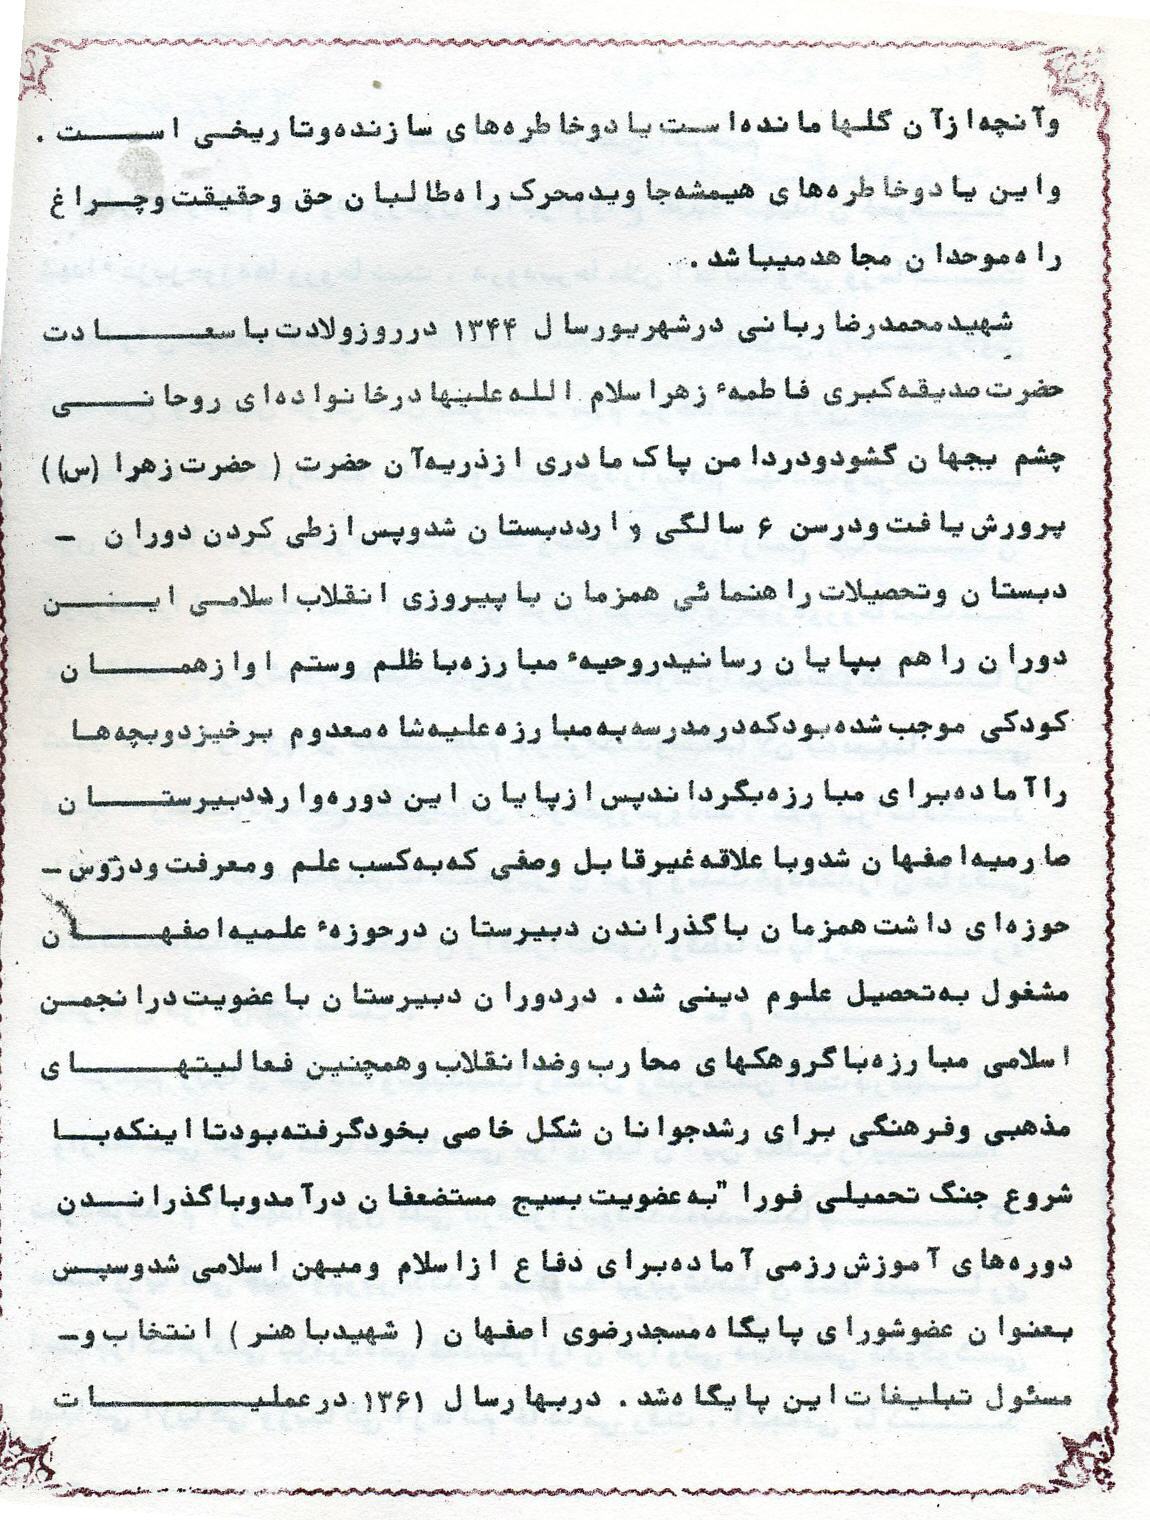 وآنچه از آن گلها مانده است یاد و خاطره های سازنده و تاریخی است .
و این یاد و خاطره های همیشه جاوید محرک راه طالبان حق و حقیقت و چراغ
راه موحدان مجاهد میباشد .
شهید محمدرضا ربانی در شهریور سال ۱۳۴۴ در روز ولادت با سعادت
حضرت صدیقه کبری فاطمهٔ زهرا سلام الله علیها در خانواده ای روحانی
چشم بجهان گشود و در دامن پاک مادری از ذریه آن حضرت ( حضرت زهرا (س))
پرورش یافت و در سن ۶ سالگی وارد دبستان شد و پس از طی کردن دوران -
دبستان و تحصیلات راهنمائی همزمان با پیروزی انقلاب اسلامی این
دوران را هم بپایان رسانید روحیهٔ مبارزه با ظلم و ستم او از همان
کودکی موجب شده بود که در مدرسه به مبارزه علیه شاه معدوم برخیزد و بچه ها
را آماده برای مبارزه بگرداند پس از پایان این دوره وارد دبیرستان
صارمیه اصفهان شد و با علاقه غیر قابل وصفی که به کسب علم و معرفت و دروس -
حوزه ای داشت همزمان با گذراندن دبیرستان در حوزهٔ علمیه اصفهان
مشغول به تحصیل علوم دینی شد . در دوران دبیرستان با عضویت در انجمن
اسلامی مبارزه با گروهکهای محارب و ضد انقلاب و همچنین فعالیتهای
مذهبی و فرهنگی برای رشد جوانان شکل خاصی بخود گرفته بود تا اینکه با
شروع جنگ تحمیلی فورا" به عضویت بسیج مستضعفان در آمد و با گذراندن
دوره های آموزش رزمی آماده برای دفاع از اسلام و میهن اسلامی شد و سپس
بعنوان عضو شورای پایگاه مسجد رضوی اصفهان ( شهید باهنر ) انتخاب و -
مسئول تبلیغات این پایگاه شد . در بهار سال ۱۳۶۱ در عملیات